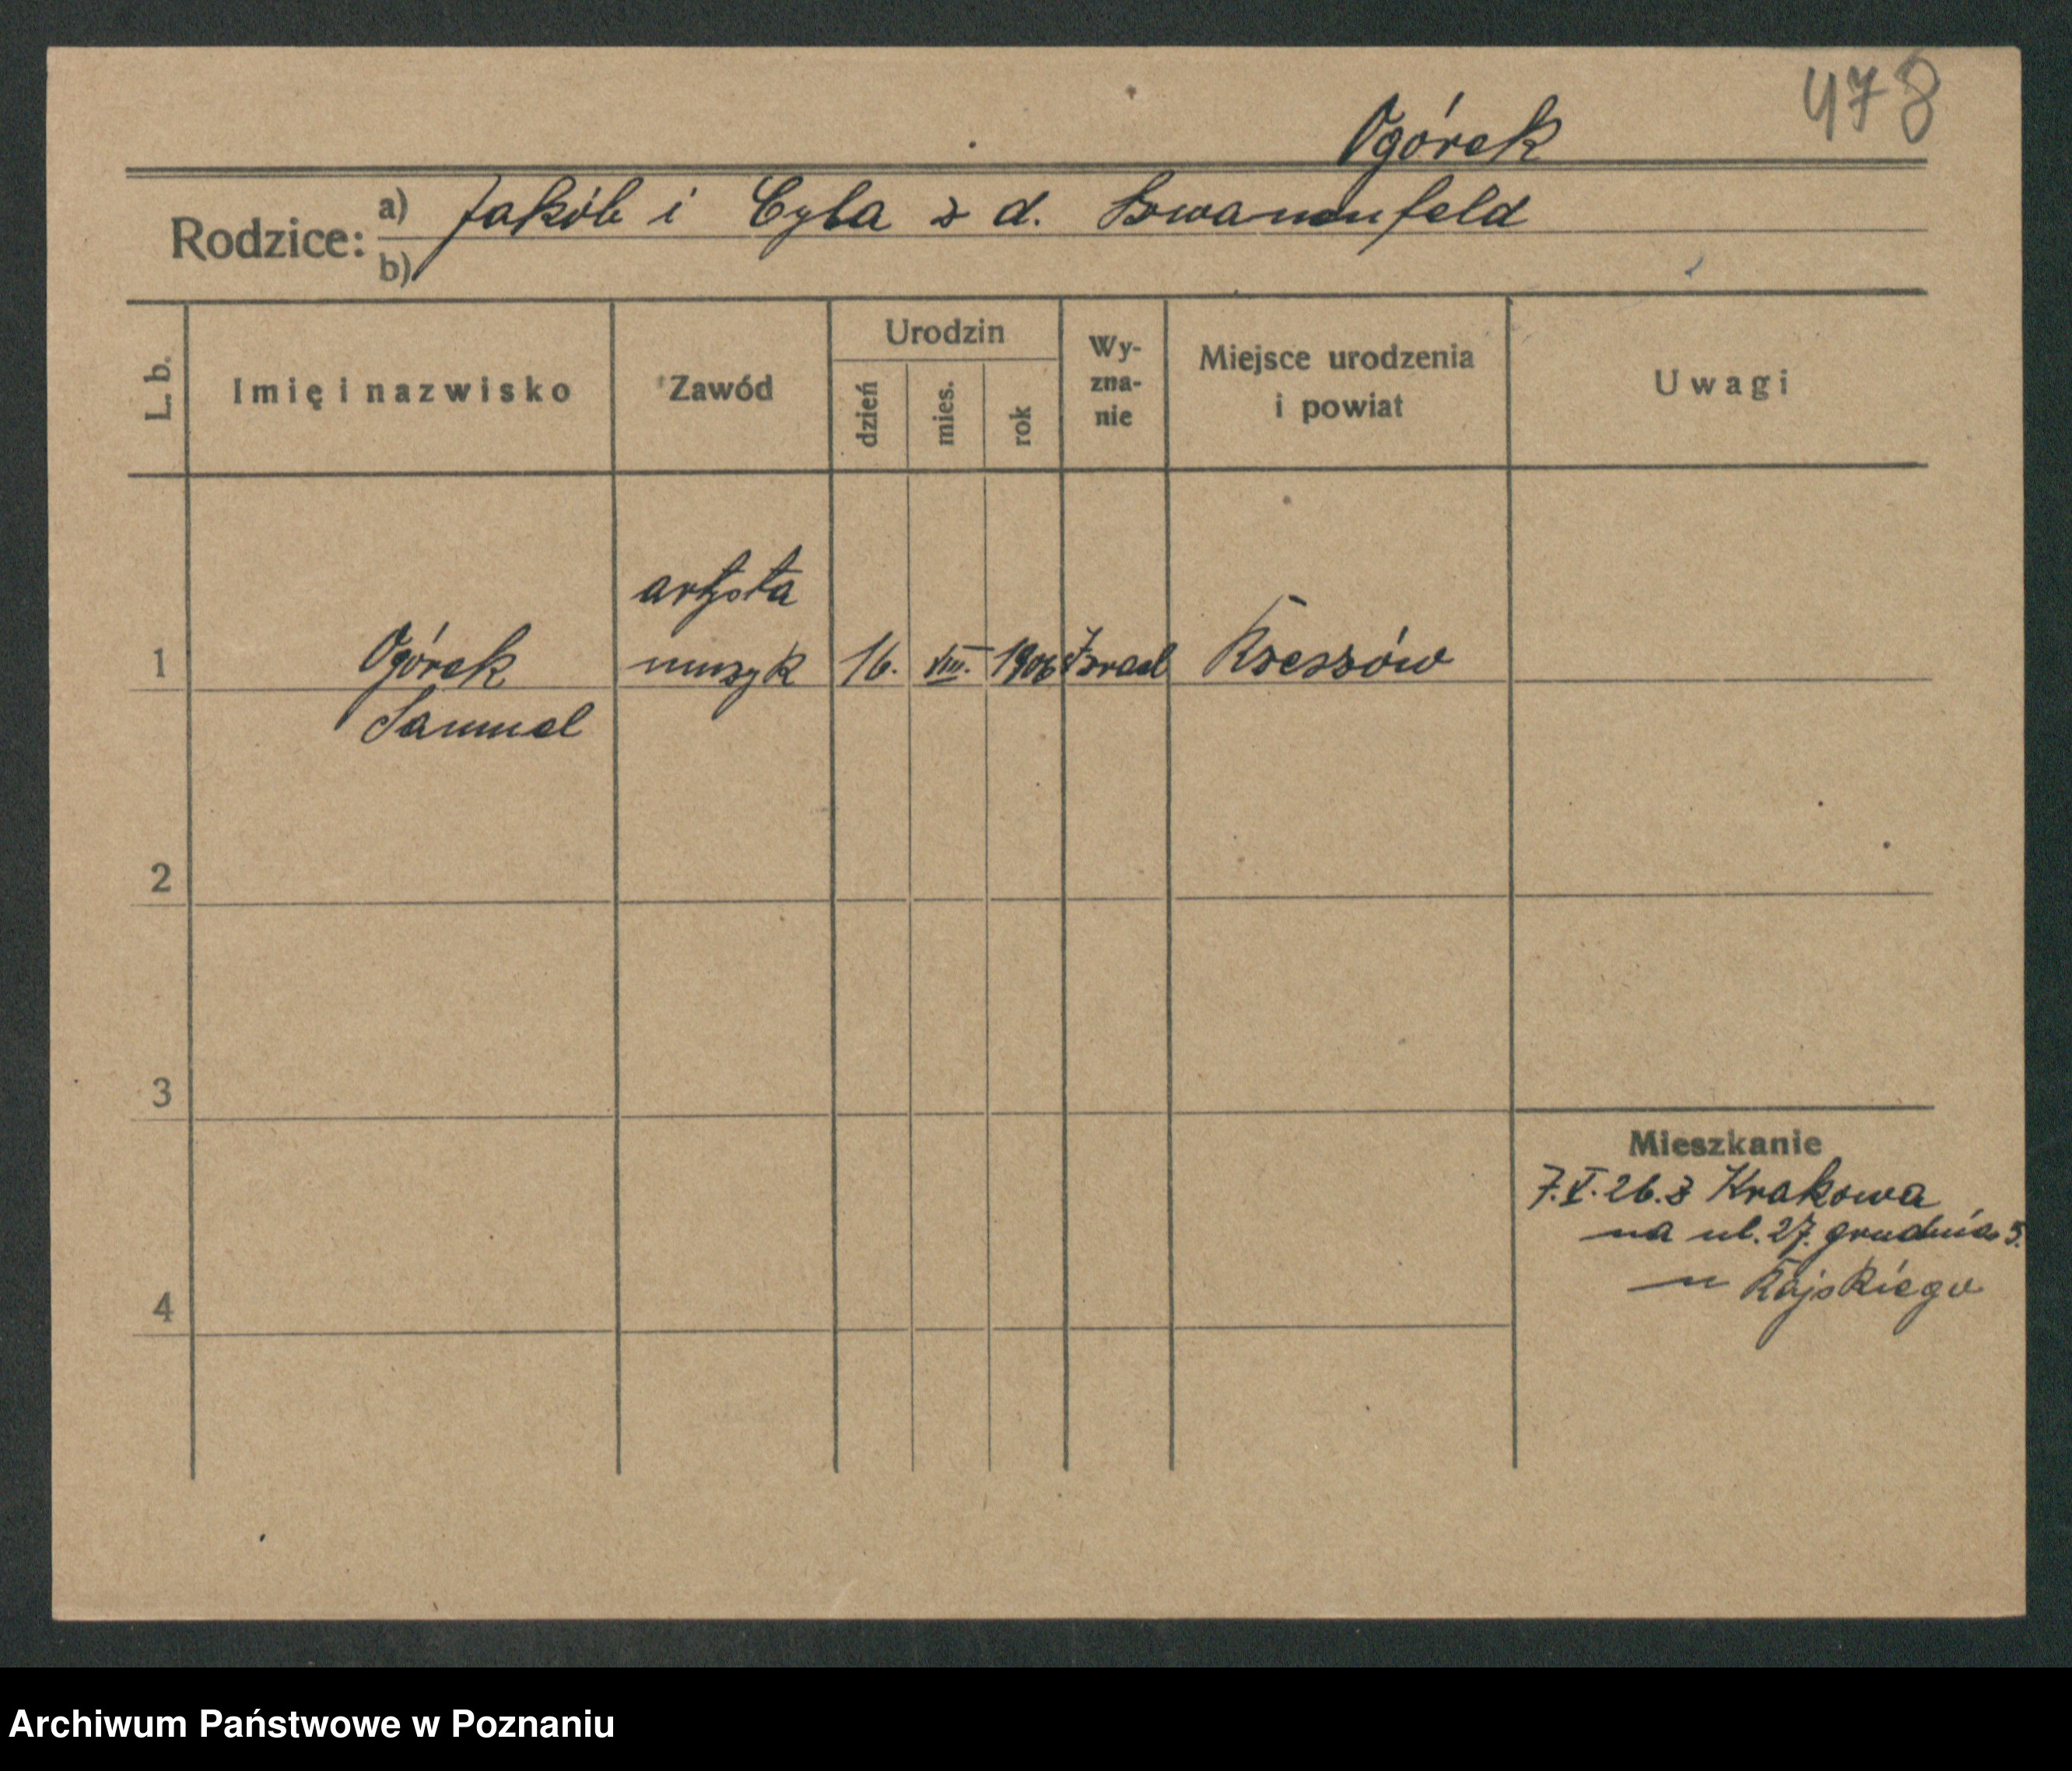 478
Ogórek
Rodzice: a) Jakób i Cyla z d.
b)
L. b.
Imię i nazwisko
Zawód
Urodzin
dzień
mies.
rok
Wy-
zna-
nie
Miejsce urodzenia
i powiat
Uwagi
artysta
1 Ogórek muzyk 16. VIII. 1906 Izrael Rzeszów
Samuel
2
3
Mieszkanie
7.V.26. z Krakowa
na ul. 27. grudnia 5.
u Rajskiego
4
Archiwum Państwowe w Poznaniu